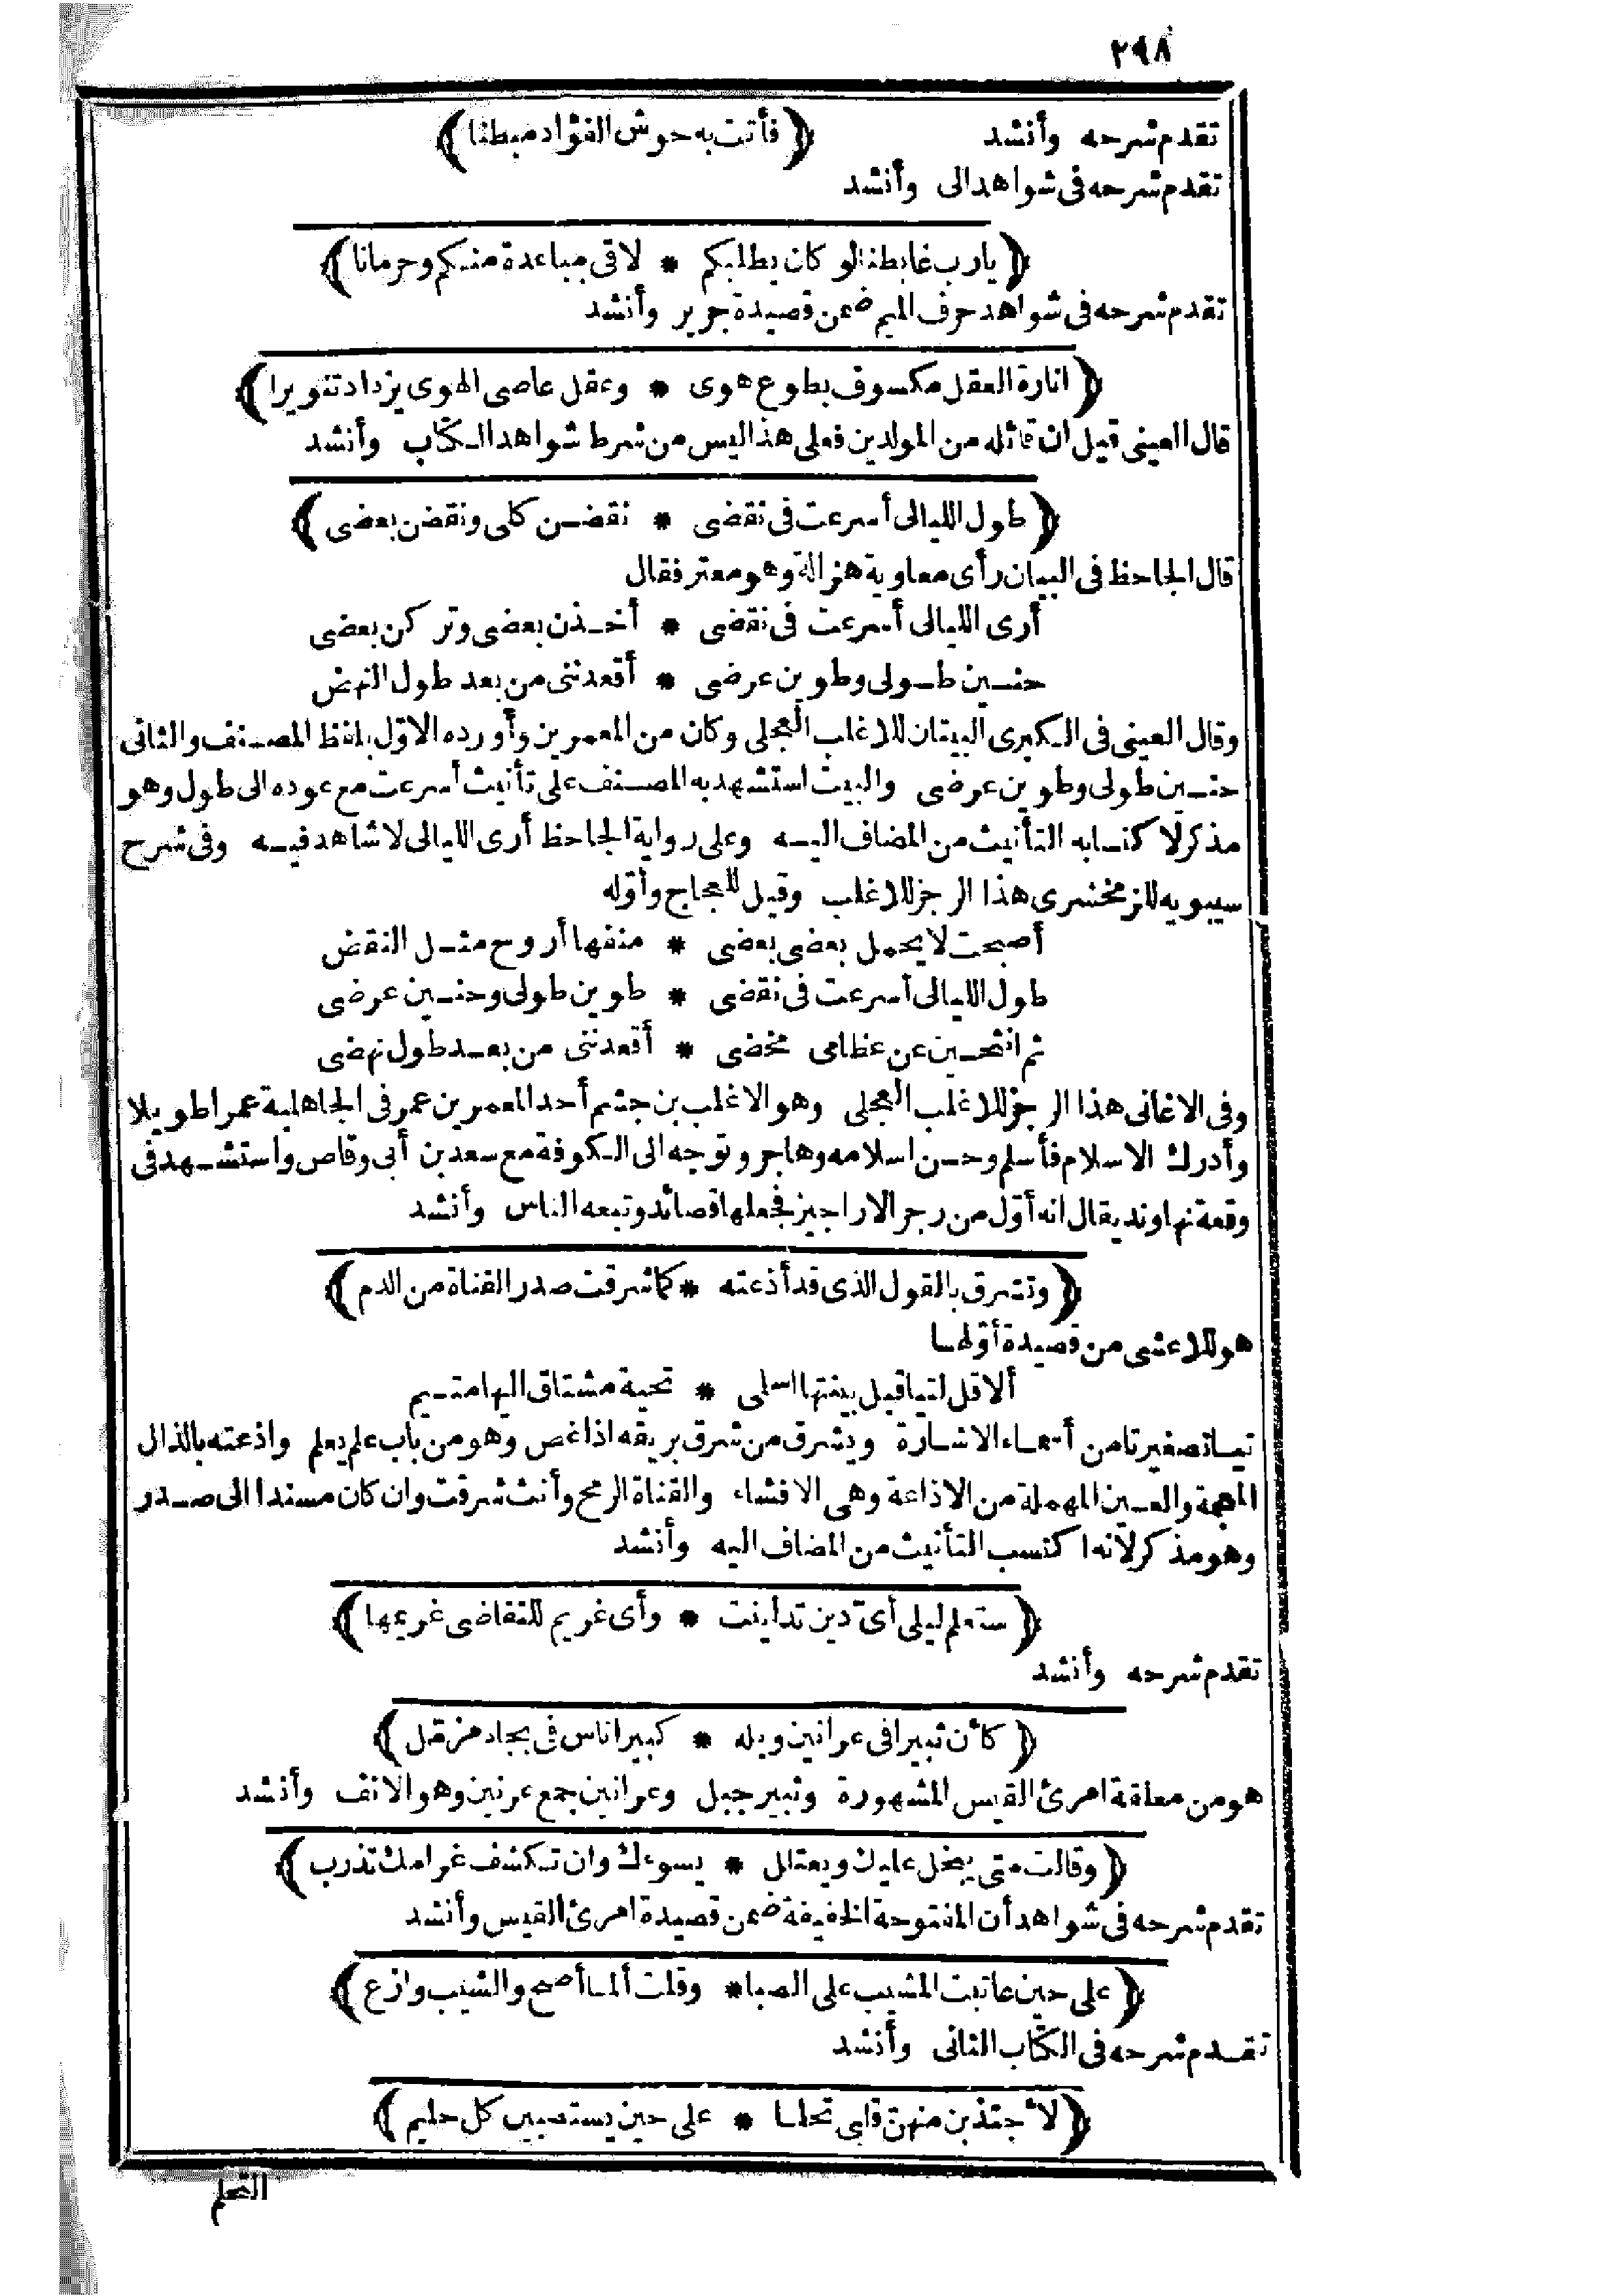 ٢٩٨
تقدم شرحه وأنشد (فأتت به حوش الفؤاد مبطنا)
تقدم شرحه فى شواهد الى وأنشد
(يارب غابطنا لو كان يطلبكم * لاقى مباعدة منكم وحرمانا)
تقدم شرحه فى شواهد حرف الميم ضمن قصيدة جرير وأنشد
(انارة العقل مكسوف بطوع هوى * وعقل عاصى الهوى يزداد تنويرا)
قال العينى قيل ان قائله من المولدين فعلى هذا ليس من شرط شواهد الكتاب وأنشد
(طول الليالى أسرعت فى نقضى * نقضن كلى ونقضن بعضى)
قال الجاحظ فى البيان رأى معاوية هزاله وهو معتر فقال
أرى الليالى أسرعت فى نقضى * أخذن بعضى وتركن بعضى
حنين طولى وطوين عرضى * أقعدننى من بعد طول النهض
وقال العينى فى الكبرى البيتان للاغلب العجلى وكان من المعمرين وأورده الاوّل بلفظ المصنف والثانى
حنين طولى وطوين عرضى والبيت استشهد به المصنف على تأنيث أسرعت مع عوده الى طول وهو
مذكر لاكتسابه التأنيث من المضاف اليه وعلى رواية الجاحظ أرى الليالى لاشاهد فيه وفى شرح
سيبويه للزمخشرى هذا الرجز للاغلب وقيل للعجاج وأوّله
أصبحت لا يحمل بعضى بعضى * منفها أروح مثل النقض
طول الليالى أسرعت فى نقضى * طوين طولى وحنين عرضى
ثم انتحين عن عظامى مخضى * أقعدننى من بعد طول نهضى
وفى الاغانى هذا الرجز للاغلب العجلى وهو الاغلب بن جشم أحد المعمرين عمر فى الجاهلية عمرا طويلا
وأدرك الاسلام فأسلم وحسن اسلامه وهاجر وتوجه الى الكوفة مع سعد بن أبى وقاص واستشهد فى
وقعة نهاوند يقال انه أوّل من رجز الاراجيز فجعلها قصائد وتبعه الناس وأنشد
(وتشرق بالقول الذى قد أذعته * كما شرقت صدر القناة من الدم)
هو للاعشى من قصيدة أوّلها
ألا قل لتيا قبل بينتها اسلمى * تحية مشتاق اليها متيم
تيا تصغير تا من أسماء الاشارة ويشرق من شرق بريقه اذا غص وهو من باب علم يعلم واذعته بالذال
المعجمة والعين المهملة من الاذاعة وهى الافشاء والقناة الرمح وأنث شرقت وان كان مسندا الى صدر
وهو مذكر لأنه اكتسب التأنيث من المضاف اليه وأنشد
(ستعلم ليلى أىّ دين تداينت * وأى غريم للتقاضى غريمها)
تقدم شرحه وأنشد
(كأن ثبيرا فى عرانين وبله * كبير اناس فى بجاد مزمّل)
هو من معلقة امرئ القيس المشهورة وثبير جبل وعرانين جمع عرنين وهو الانف وأنشد
(وقالت متى يبخل عليك ويعتلل * يسوءك وان تكشف غرامك تدرب)
تقدم شرحه فى شواهد أن المفتوحة الخفيفة ضمن قصيدة امرئ القيس وأنشد
(على حين عاتبت المشيب على الصبا * وقلت ألما أصح والشيب وازع)
تقدم شرحه فى الكتاب الثانى وأنشد
(لأجتذبن منهنّ قلبى تحلما * على حين يستصبين كل حليم)
التحلم